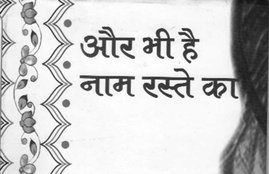 और भी है
नाम रस्ते का